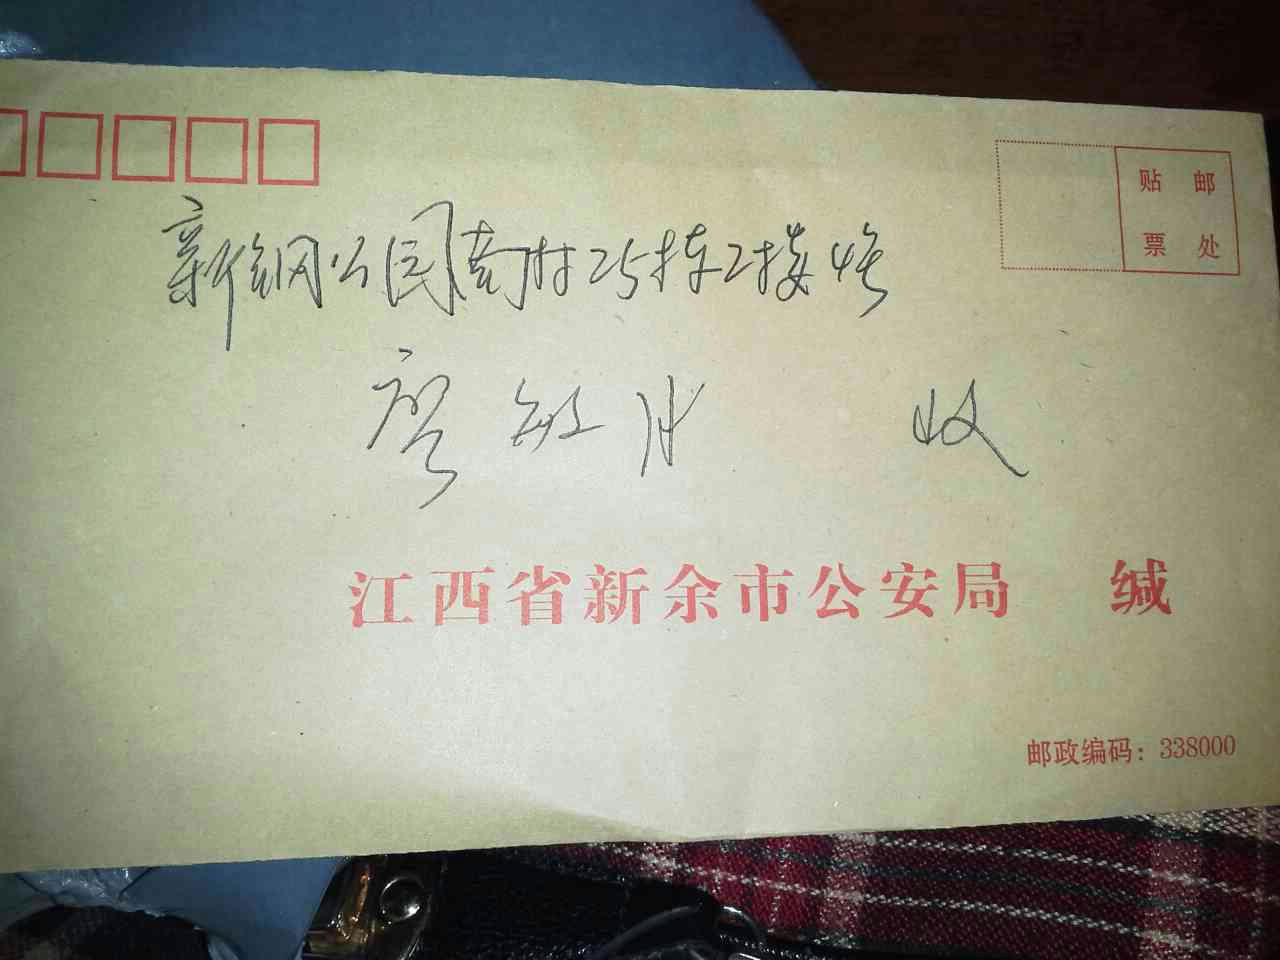 贴 邮
票 处
新钢公司南村25栋2楼4号
廖敏 收
江西省新余市公安局 缄
邮政编码：338000